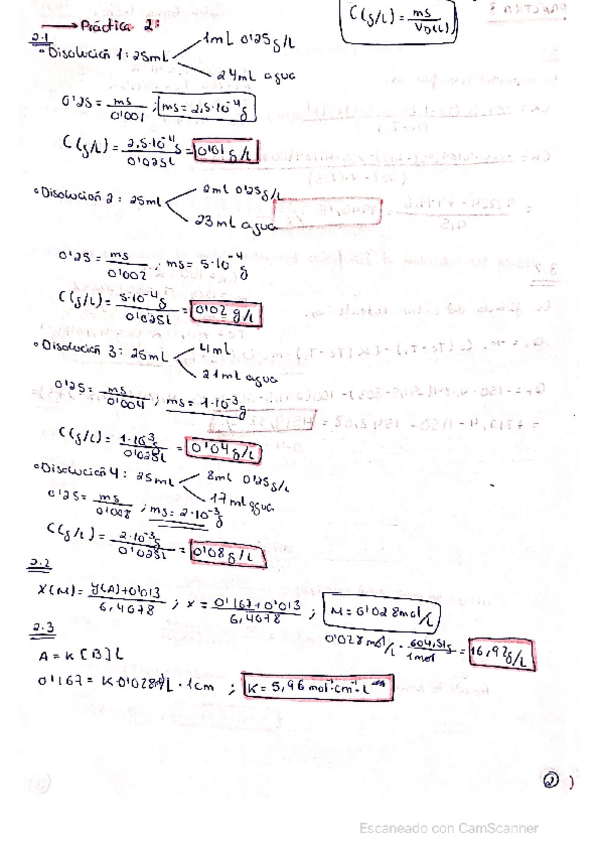 → Práctica 2:
C(g/L) = ms / VD(L)
2.1
• Disolución 1: 25mL
1mL 0'25 g/L
24mL agua
0'25 = ms / 0'001 ; ms = 2,5·10⁻⁴ g
C(g/L) = 2,5·10⁻⁴ g / 0'025L = 0'01 g/L
• Disolución 2: 25mL
2mL 0'25 g/L
23mL agua
0'25 = ms / 0'002 ; ms = 5·10⁻⁴ g
C(g/L) = 5·10⁻⁴ g / 0'025L = 0'02 g/L
• Disolución 3: 25mL
4mL
21mL agua
0'25 = ms / 0'004 ; ms = 1·10⁻³ g
C(g/L) = 1·10⁻³ g / 0'025L = 0'04 g/L
• Disolución 4: 25mL
8mL 0'25 g/L
17mL agua
0'25 = ms / 0'008 ; ms = 2·10⁻³ g
C(g/L) = 2·10⁻³ g / 0'025L = 0'08 g/L
2.2
X(M) = y(A)+0'013 / 6,4078 ; x = 0'167+0'013 / 6,4078 ; M = 0'028 mol/L
0'028 mol/L · 604,51g / 1mol = 16,92 g/L
2.3
A = K [B] L
0'167 = K · 0'028 · 1cm ; K = 5,96 mol⁻¹·cm⁻¹·L
2
Escaneado con CamScanner